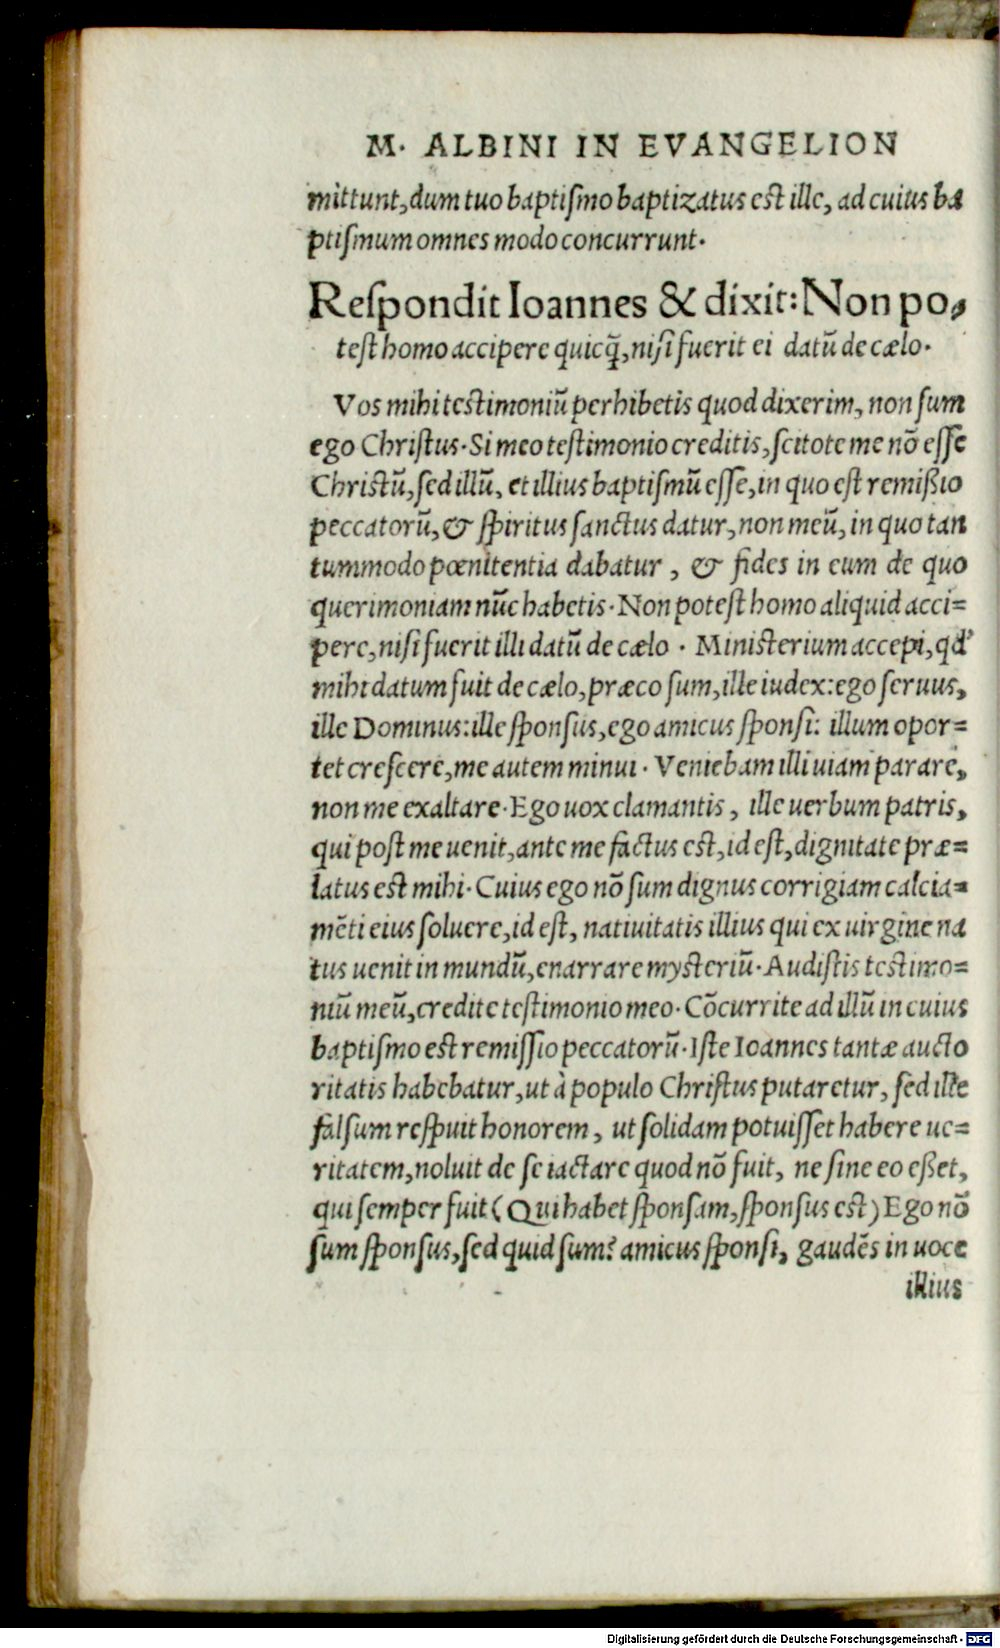 M. ALBINI IN EVANGELION
mittunt, dum tuo baptiſmo baptizatus est ille, ad cuius ba
ptiſmum omnes modo concurrunt.
Reſpondit Ioannes & dixit: Non po,
teſt homo accipere quicq̃, niſi fuerit ei datũ de cælo.
Vos mihi testimoniũ perhibetis quod dixerim, non ſum
ego Chriſtus. Si meo teſtimonio creditis, ſcitote me nõ eſſe
Christũ, ſed illũ, et illius baptiſmũ eſſe, in quo eſt remißio
peccatorũ, & ſpiritus ſanctus datur, non meũ, in quo tan
tummodo pœnitentia dabatur, & fides in eum de quo
querimoniam nũc habetis. Non poteſt homo aliquid acci=
pere, niſi fuerit illi datũ de cælo. Ministerium accepi, qd’
mihi datum fuit de cælo, præco ſum, ille iudex: ego ſeruus,
ille Dominus: ille ſponſus, ego amicus ſponſi: illum opor=
tet creſcere, me autem minui. Veniebam illi uiam parare,
non me exaltare. Ego uox clamantis, ille uerbum patris,
qui poſt me uenit, ante me factus est, id eſt, dignitate præ=
latus est mihi. Cuius ego nõ ſum dignus corrigiam calcia=
mẽti eius ſoluere, id eſt, natiuitatis illius qui ex uirgine na
tus uenit in mundũ, enarrare mysteriũ. Audiſtis testimo=
niũ meũ, credite teſtimonio meo. Cõcurrite ad illũ in cuius
baptiſmo est remiſſio peccatorũ. Iſte Ioannes tantæ aucto
ritatis habebatur, ut à populo Chriſtus putaretur, ſed ille
falſum reſpuit honorem, ut ſolidam potuiſſet habere ue=
ritatem, noluit de ſe iactare quod nõ fuit, ne ſine eo eßet,
qui ſemper fuit (Qui habet ſponſam, ſponſus est) Ego nõ
ſum ſponſus, ſed quid ſum? amicus ſponſi, gaudẽs in uoce
illius
Digitalisierung gefördert durch die Deutsche Forschungsgemeinschaft - DFG